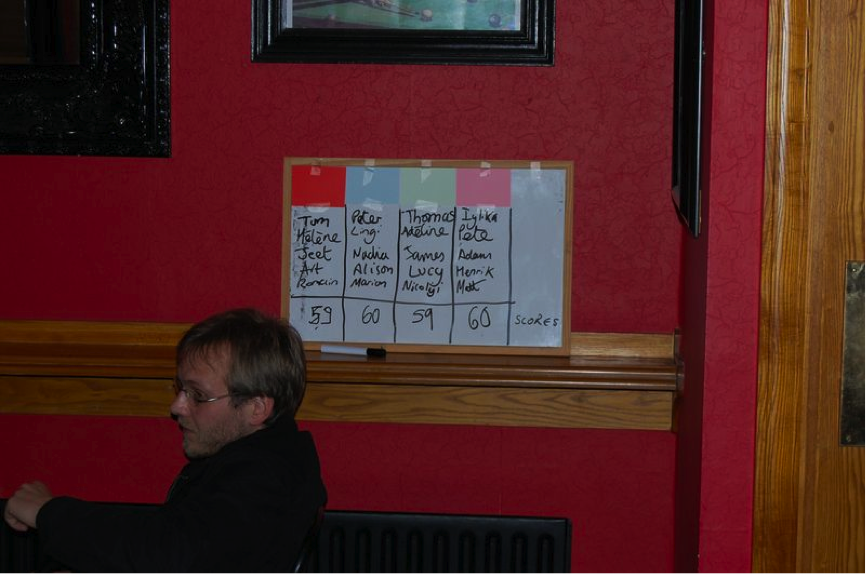 Tom Peter Thomas Iylka
Mélène Ling Adeline Pete
Jeet Nadia James Adam
Art Alison Lucy Henrik
Romain Marion Nicolyi Matt
59 60 59 60 SCORES